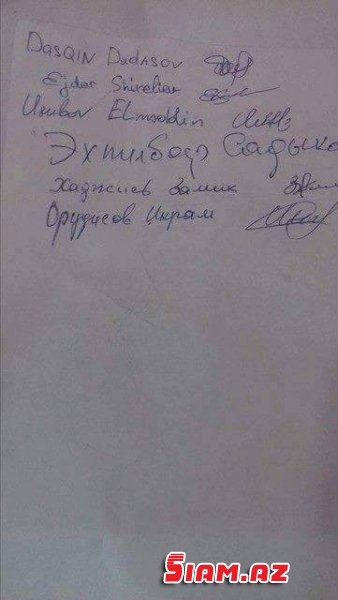 Dasqin Dadasov
Ejdar Shireliev
Unubov Elmeddin
Эхтибор Садыко
Хаджиев Замик
Орудисов Икрам
Siam.az